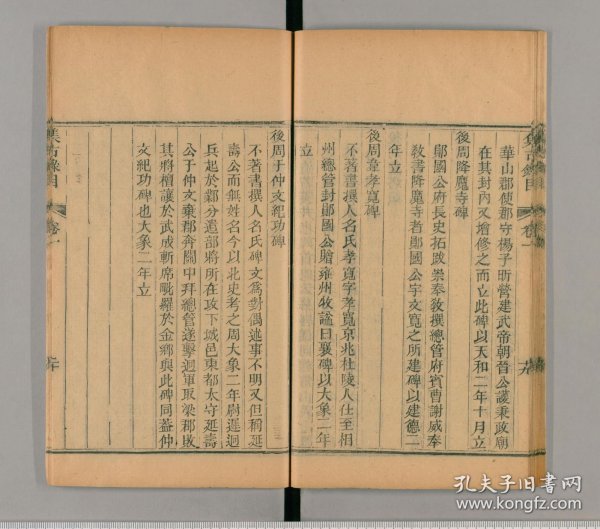 華山郡使郡守楊子昕營建武帝朝晉公護秉政廟
在其封內又增修之而立此碑以天和二年十月立
後周降魔寺碑
鄖國公府長史拓跋崇奉敎撰總管府賓曹謝威奉
敎書降魔寺者鄖國公宇文寬之所建碑以建德二
年立
後周韋孝寬碑
不著書撰人名氏孝寬字孝寬京兆杜陵人仕至相
州總管封鄖國公贈雍州牧謚曰襄碑以大象二年
立
集古錄目
卷一
九
後周于仲文紀功碑
不著書撰人名氏碑文爲對偶述事不明又但稱延
壽公而無姓名今以北史考之周大象二年尉遲迥
兵起於鄴分遣部將所在攻下城邑東都太守延壽
公于仲文棄郡奔關中拜總管遂擊迥軍取梁郡敗
其將檀讓於武成斬席毗羅於金鄉與此碑同蓋仲
文紀功碑也大象二年立
集古錄目
卷一
二十
孔夫子旧书网
www.kongfz.com